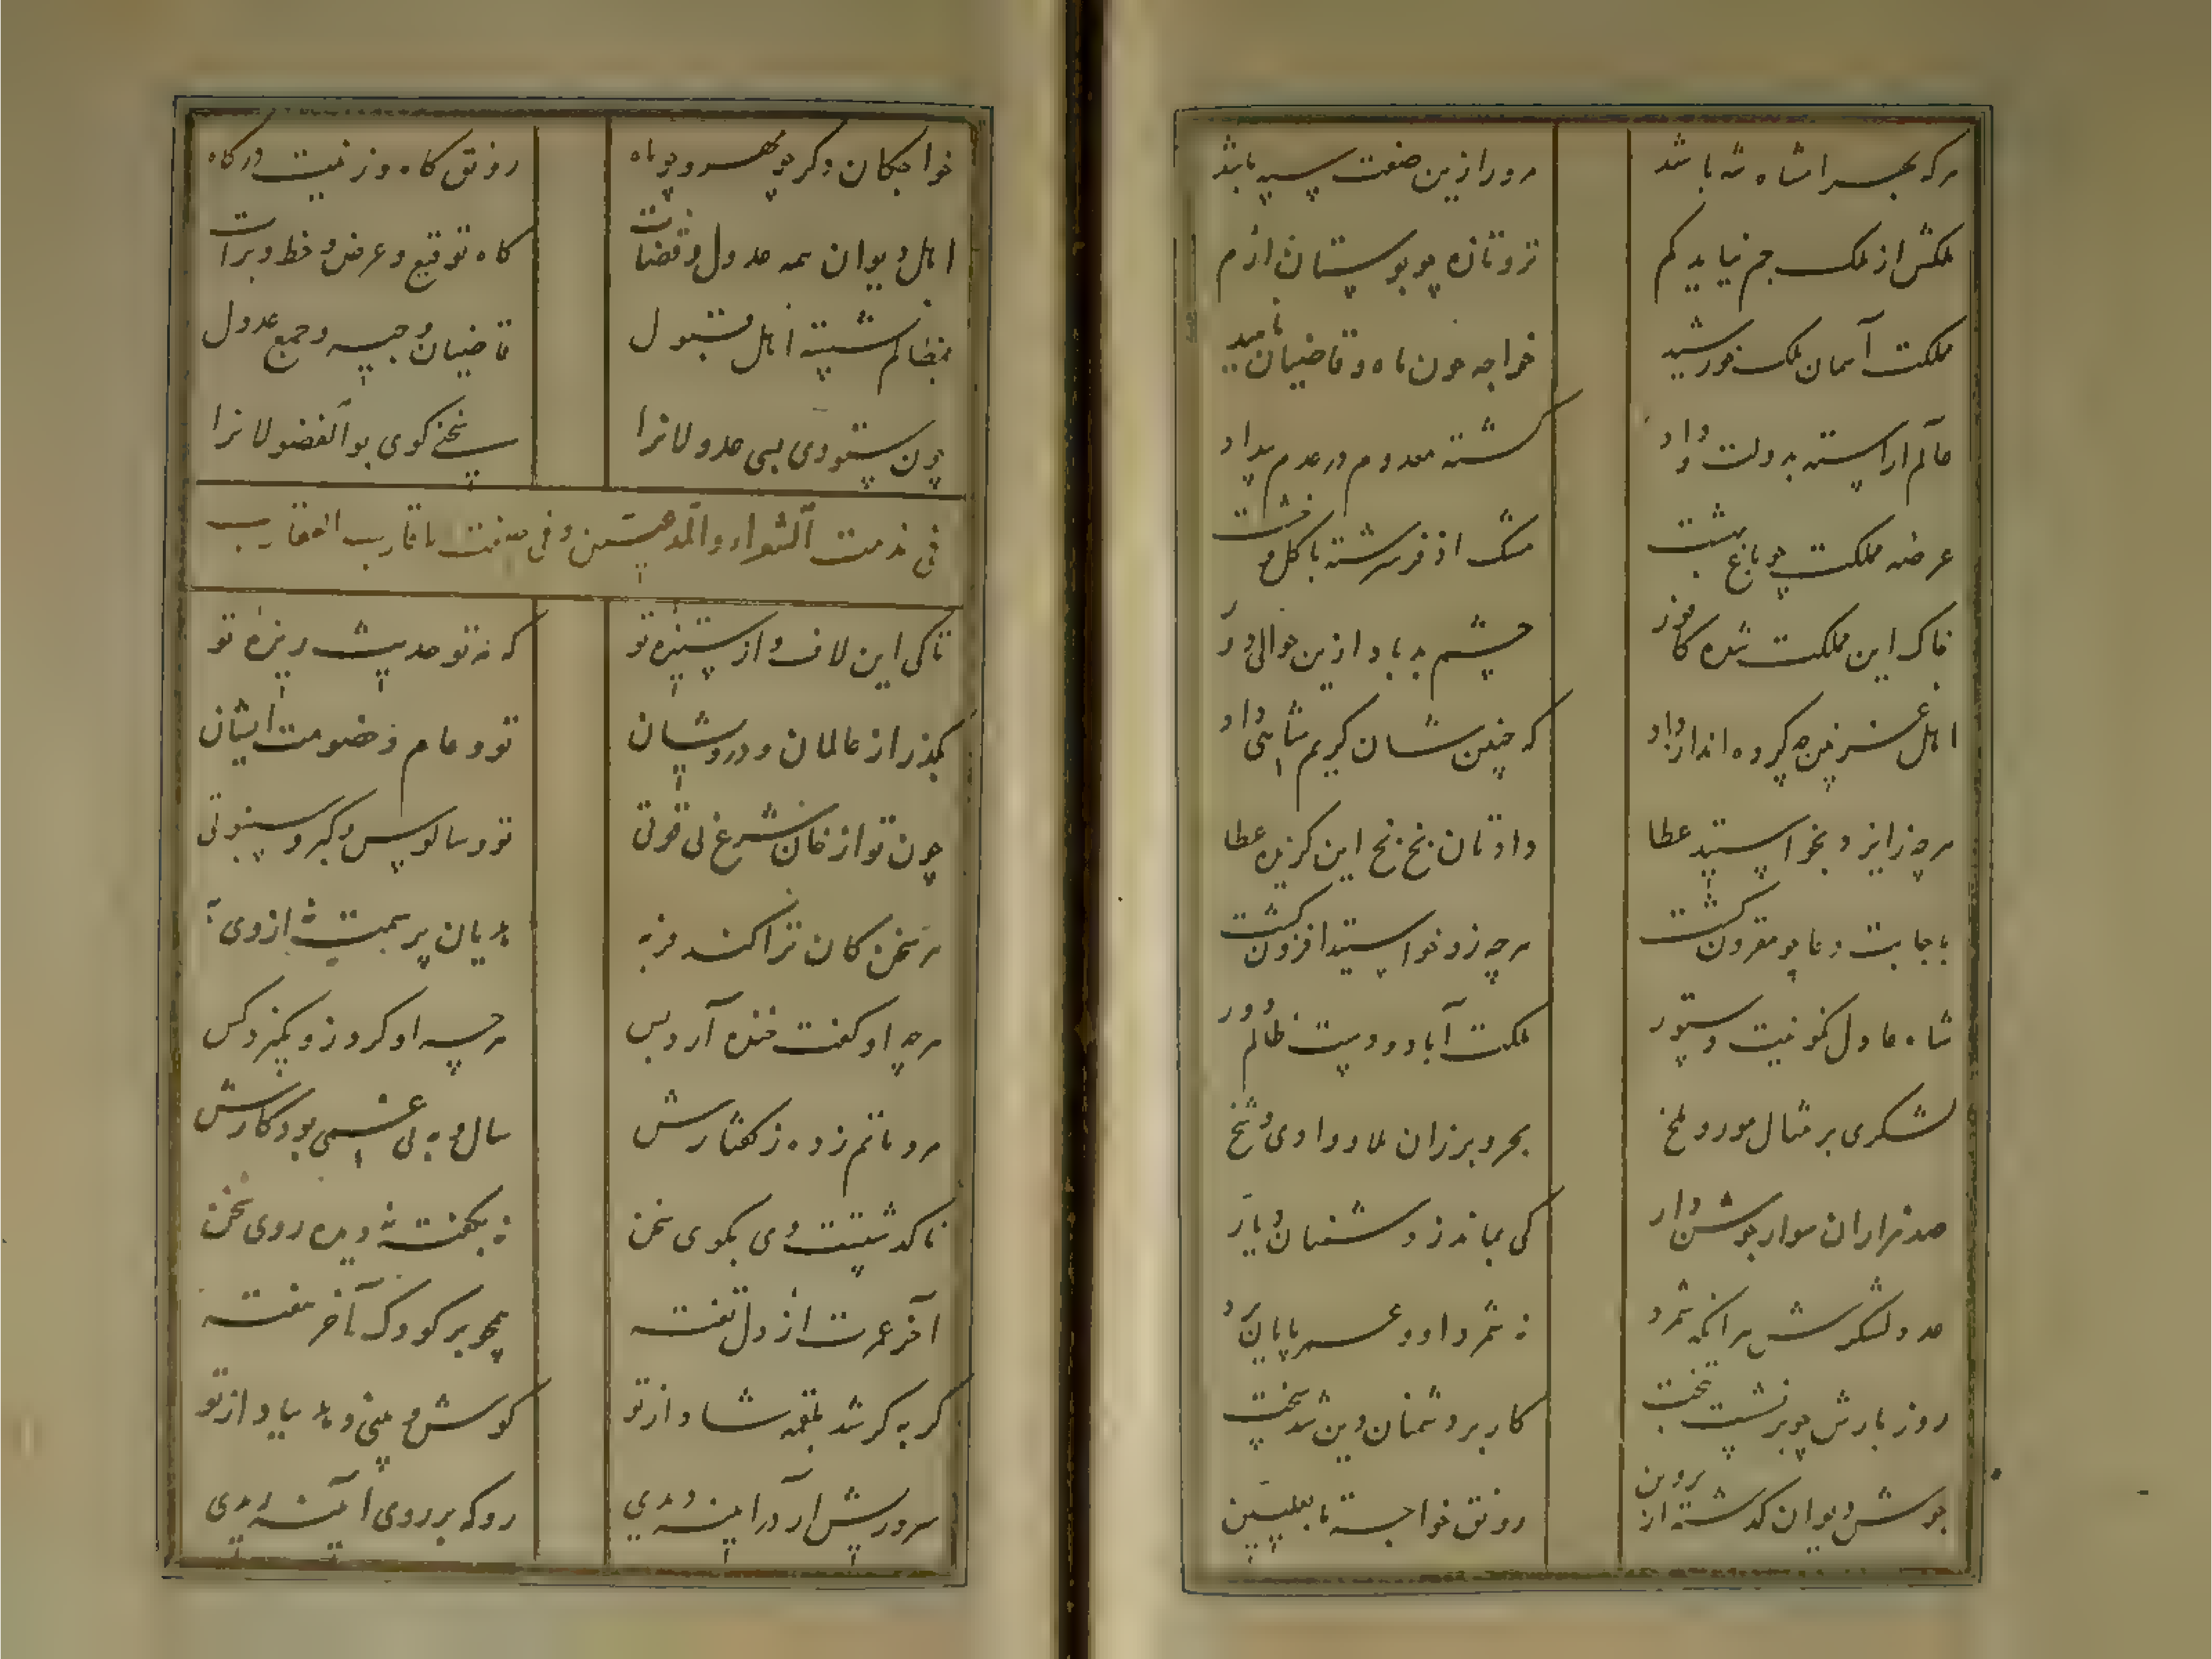 هرکه بهرامشاه شه باشد	هر دو را زین صفت سپه باشد
ملکش از ملک جم نیاید کم	تر و تازه چو بوستان ارم
مملکت آسمان ملک خورشید	خواجه چون ماه و قاضیان ناهید
عالم آراسته بدولت و داد	گشته معدوم در عدم بیداد
عرضه مملکت چو باغ بهشت	سگ از فرشته با گل
خاک این مملکت شده کافور	چشم بد باد ازین حوالی دور
اهل غزنین کرده اندازه داد	که چنین شان کریم شاهی داد
هرچه زایزد بخواستید عطا	دادتان بخ بخ این گزیده عطا
باجابت دعا چو مقرون گشت	هرچه زو خواستید افزون گشت
شاه عادل کفونیت دستور	ملکت آباد و ظالم دور
لشکری بر مثال مور و ملخ	بحر و بر زان ملا و وادی و شخ
صد هزاران سوار جوشن دار	کی بماند ز دشمنان دیار
عدد لشکرش هرآنکه شمرد	نه شمرد او و عمر پایان برد
روز بارش چو برنشست بتخت	کار بر دشمنان دین شد سخت
جوش دیوان گذشته از پروین	رونق خواجه تا بعلیین
خواجگان دگر چو مهر و چو ماه	رونق گاه و زینت درگاه
اهل دیوان همه عدول و قضات	گاه توقیع و عرض و خط و برات
بمظالم نشسته اهل قبول	قاضیان وجیه و جمع عدول
چون ستودی بسی عدولانرا	سخنی گوی بوالفضولانرا
فی مذمت الشعراء والمدعیین و فی صفت الاقارب العقارب
تا کی این لاف و از ستیزه تو	که نه تو حدیث ریزه تو
بگذر از عالمان و درویشان	تو و عام و خصومت ایشان
چون تو از خان شرع بی قوتی	تو و سالوس و کبر و سبنوتی
هر سخن کان ترا کند فربه	هذیان پر بهست ازوی به
هرچه او گفت خنده آرد و بس	هرچه او کرد زو نگیرد کس
مرد ماتم زده ز گفتارش	سال و مه بی غمی بود کارش
ناگذشتست وی بکوی سخن	نه بگفته نه دیده روی سخن
آخر عمرت از دل تفته	همچو بر کودک آخر هفته
گربه گر شد بلقمه شاد از تو	گوش و بینی و نه بیاد از تو
سر و ریش ار در آینه دیدی	رو که بر روی آینه دیدی